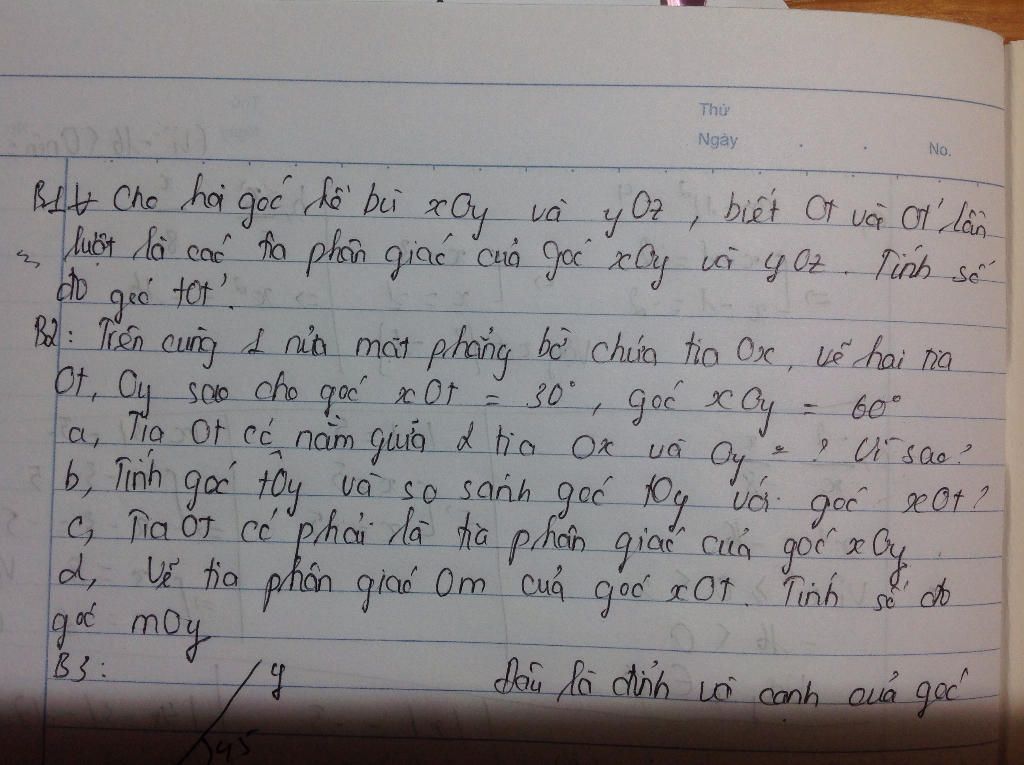 Thứ
Ngày
No.
B1: Cho hai góc kề bù xOy và yOz, biết Ot và Ot' lần
lượt là các tia phân giác của góc xOy và yOz. Tính số
đo góc tOt'.
B2: Trên cùng 1 nửa mặt phẳng bờ chứa tia Ox, vẽ hai tia
Ot, Oy sao cho góc xOt = 30°, góc xOy = 60°
a, Tia Ot có nằm giữa 2 tia Ox và Oy = ? Vì sao?
b, Tính góc tOy và so sánh góc tOy với góc xOt?
c, Tia Ot có phải là tia phân giác của góc xOy
d, Vẽ tia phân giác Om của góc xOt. Tính số đo
góc mOy
B3: y Đâu là đỉnh và cạnh của góc
45